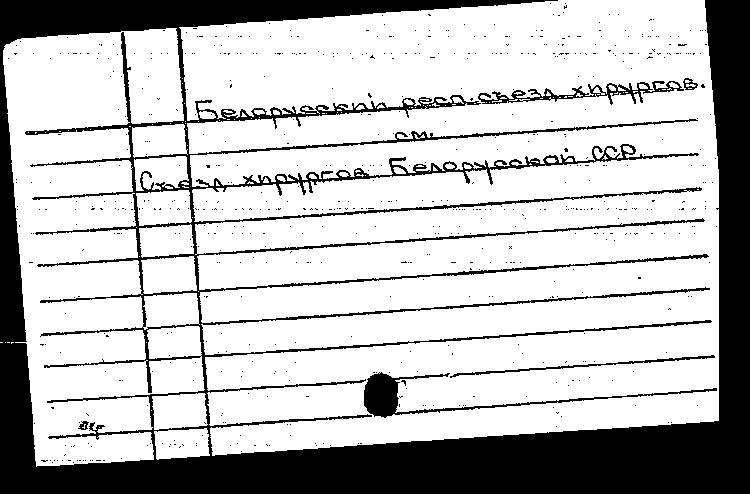 Белорусский респ. съезд хирургов.
см.
Съезд хирургов Белорусской ССР.